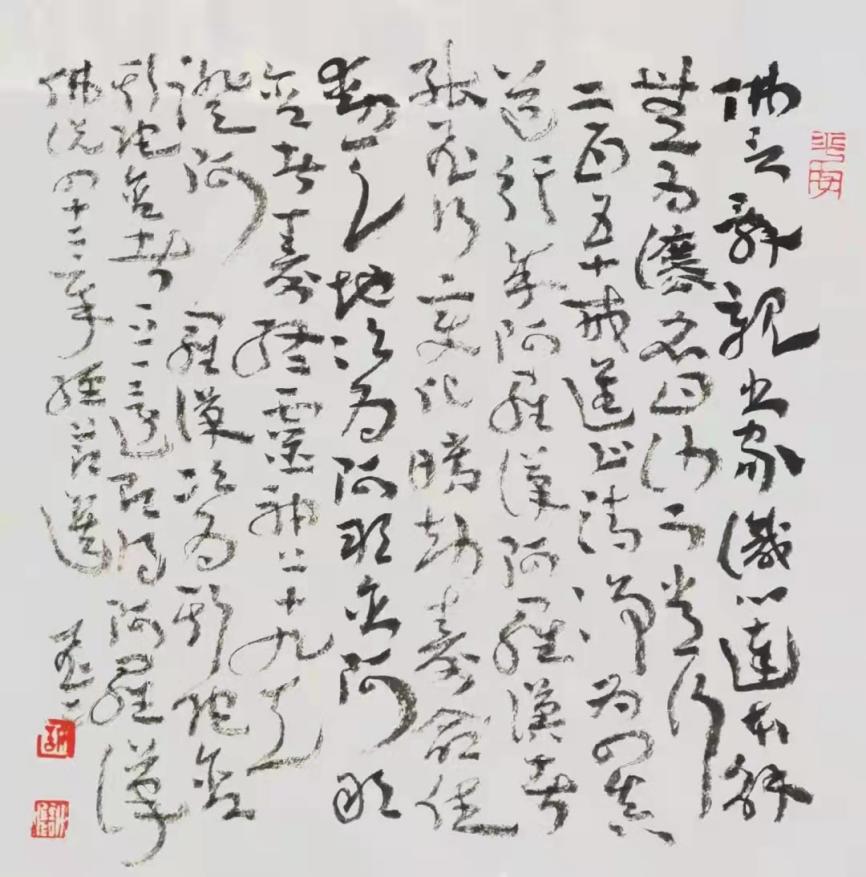 佛言辭親出家識心達本解
無為灋名曰沙門常行
二百五十戒進止清淨為四真
道行成阿羅漢阿羅漢者
能飛行變化曠劫壽命住
動天地次為阿那含阿那
含者壽終靈神上十九天
證阿羅漢次為斯陀含
斯陀含者一上一還即得阿羅漢
佛說四十二章經節選